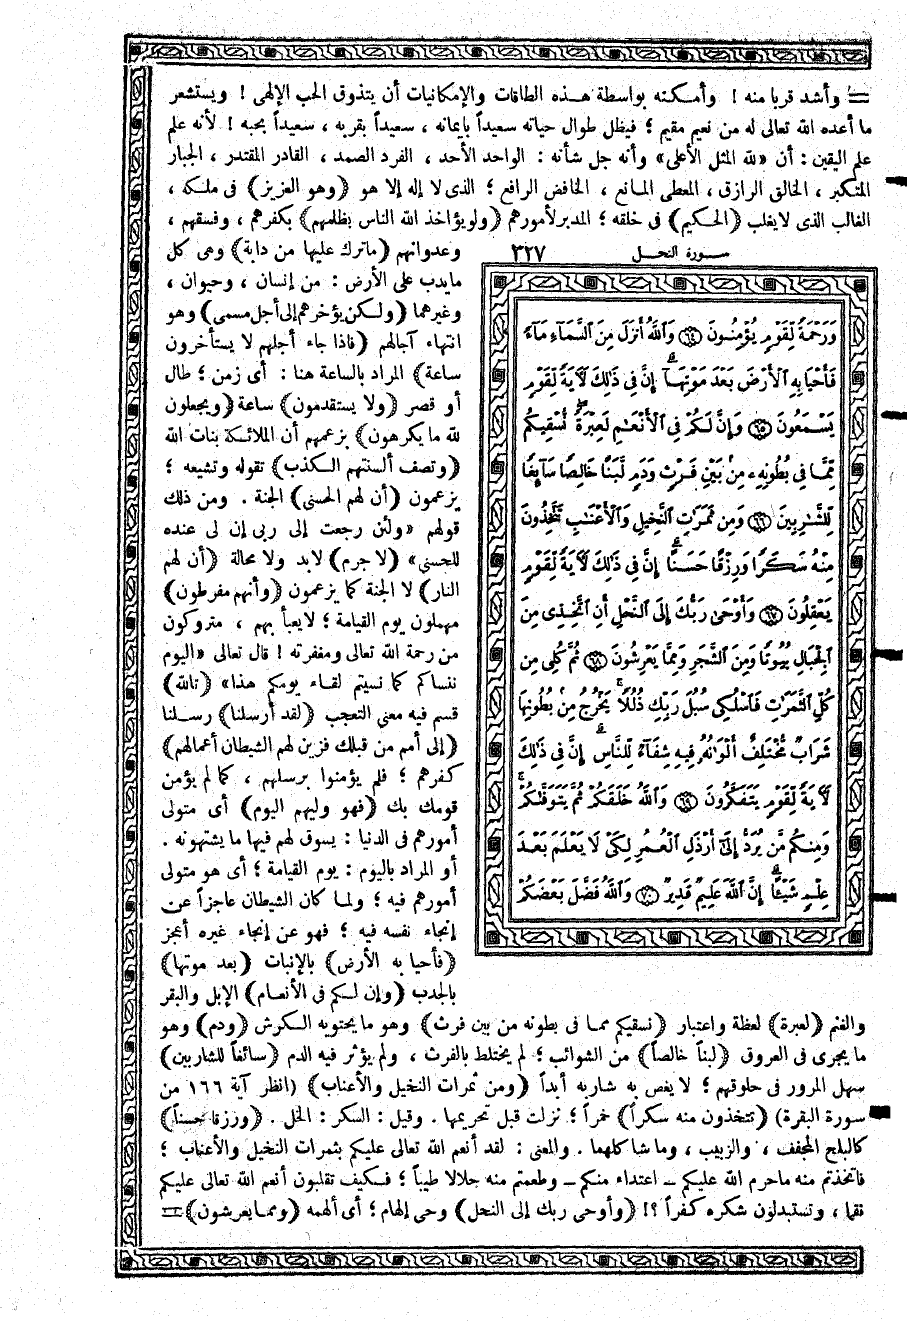 = وأشد قربا منه ! وأمكنه بواسطة هذه الطاقات والإمكانيات أن يتذوق الحب الإلهى ! ويستشعر
ما أعده الله تعالى له من نعيم مقيم ؛ فيظل طوال حياته سعيداً بايمانه ، سعيداً بقربه ، سعيداً بحبه ! لأنه علم
علم اليقين : أن «لله المثل الأعلى» وأنه جل شأنه : الواحد الأحد ، الفرد الصمد ، القادر المقتدر ، الجبار
المتكبر ، الخالق الرازق ، المعطى المانع ، الخافض الرافع ؛ الذى لا إله إلا هو (وهو العزيز) فى ملكه ،
الغالب الذى لا يغلب (الحكيم) فى خلقه ؛ المدبر لأمورهم (ولو يؤاخذ الله الناس بظلمهم) بكفرهم ، وفسقهم ،
سورة النحل ٣٢٧
وَرَحْمَةً لِّقَوْمٍ يُؤْمِنُونَ ٦٤ وَاللَّهُ أَنزَلَ مِنَ السَّمَاءِ مَاءً
فَأَحْيَا بِهِ الْأَرْضَ بَعْدَ مَوْتِهَا إِنَّ فِي ذَٰلِكَ لَآيَةً لِّقَوْمٍ
يَسْمَعُونَ ٦٥ وَإِنَّ لَكُمْ فِي الْأَنْعَٰمِ لَعِبْرَةً نُّسْقِيكُم
مِّمَّا فِي بُطُونِهِ مِنۢ بَيْنِ فَرْثٍ وَدَمٍ لَّبَنًا خَالِصًا سَآئِغًا
لِّلشَّٰرِبِينَ ٦٦ وَمِن ثَمَرَٰتِ النَّخِيلِ وَالْأَعْنَٰبِ تَتَّخِذُونَ
مِنْهُ سَكَرًا وَرِزْقًا حَسَنًا إِنَّ فِي ذَٰلِكَ لَآيَةً لِّقَوْمٍ
يَعْقِلُونَ ٦٧ وَأَوْحَىٰ رَبُّكَ إِلَى النَّحْلِ أَنِ اتَّخِذِي مِنَ
الْجِبَالِ بُيُوتًا وَمِنَ الشَّجَرِ وَمِمَّا يَعْرِشُونَ ٦٨ ثُمَّ كُلِي مِن
كُلِّ الثَّمَرَٰتِ فَاسْلُكِي سُبُلَ رَبِّكِ ذُلُلًا يَخْرُجُ مِنۢ بُطُونِهَا
شَرَابٌ مُّخْتَلِفٌ أَلْوَٰنُهُ فِيهِ شِفَآءٌ لِّلنَّاسِ إِنَّ فِي ذَٰلِكَ
لَآيَةً لِّقَوْمٍ يَتَفَكَّرُونَ ٦٩ وَاللَّهُ خَلَقَكُمْ ثُمَّ يَتَوَفَّىٰكُمْ
وَمِنكُم مَّن يُرَدُّ إِلَىٰ أَرْذَلِ الْعُمُرِ لِكَيْ لَا يَعْلَمَ بَعْدَ
عِلْمٍ شَيْئًا إِنَّ اللَّهَ عَلِيمٌ قَدِيرٌ ٧٠ وَاللَّهُ فَضَّلَ بَعْضَكُمْ
وعدوانهم (ماترك عليها من دابة) وهى كل
مايدب على الأرض : من إنسان ، وحيوان ،
وغيرهما (ولكن يؤخرهم إلى أجل مسمى) وهو
انتهاء آجالهم (فاذا جاء أجلهم لا يستأخرون
ساعة) المراد بالساعة هنا : أى زمن ؛ طال
أو قصر (ولا يستقدمون) ساعة (ويجعلون
لله ما يكرهون) بزعمهم أن الملائكة بنات الله
(وتصف ألسنتهم الكذب) تقوله وتشيعه ؛
يزعمون (أن لهم الحسنى) الجنة . ومن ذلك
قولهم «ولئن رجعت إلى ربى إن لى عنده
للحسنى» (لا جرم) لابد ولا محالة (أن لهم
النار) لا الجنة كما يزعمون (وأنهم مفرطون)
مهملون يوم القيامة ؛ لايعبأ بهم ، متروكون
من رحمة الله تعالى ومغفرته ! قال تعالى «اليوم
ننساكم كما نسيتم لقاء يومكم هذا» (تالله)
قسم فيه معنى التعجب (لقد أرسلنا) رسلنا
(إلى أمم من قبلك فزين لهم الشيطان أعمالهم)
كفرهم ؛ فلم يؤمنوا برسلهم ، كما لم يؤمن
قومك بك (فهو وليهم اليوم) أى متولى
أمورهم فى الدنيا : يسوق لهم فيها ما يشتهونه .
أو المراد باليوم : يوم القيامة ؛ أى هو متولى
أمورهم فيه ؛ ولما كان الشيطان عاجزاً عن
إنجاء نفسه فيه ؛ فهو عن إنجاء غيره أعجز
(فأحيا به الأرض) بالإنبات (بعد موتها)
بالجدب (وإن لكم فى الأنعام) الإبل والبقر
والغنم (لعبرة) لعظة واعتبار (نسقيكم مما فى بطونه من بين فرث) وهو ما يحتويه الكرش (ودم) وهو
ما يجرى فى العروق (لبناً خالصاً) من الشوائب ؛ لم يختلط بالفرث ، ولم يؤثر فيه الدم (سائغاً للشاربين)
سهل المرور فى حلوقهم ؛ لا يغص به شاربه أبداً (ومن ثمرات النخيل والأعناب) (انظر آية ١٦٦ من
سورة البقرة) (تتخذون منه سكراً) خمراً ؛ نزلت قبل تحريمها . وقيل : السكر : الخل . (ورزقا حسناً)
كالبلح المجفف ، والزبيب ، وما شاكلهما . والمعنى : لقد أنعم الله تعالى عليكم بثمرات النخيل والأعناب ؛
فاتخذتم منه ماحرم الله عليكم – اعتداء منكم – وطعمتم منه حلالا طيباً ؛ فكيف تقلبون أنعم الله تعالى عليكم
نقما ، وتستبدلون شكره كفراً ؟! (وأوحى ربك إلى النحل) وحى إلهام ؛ أى ألهمه (ومما يعرشون) =